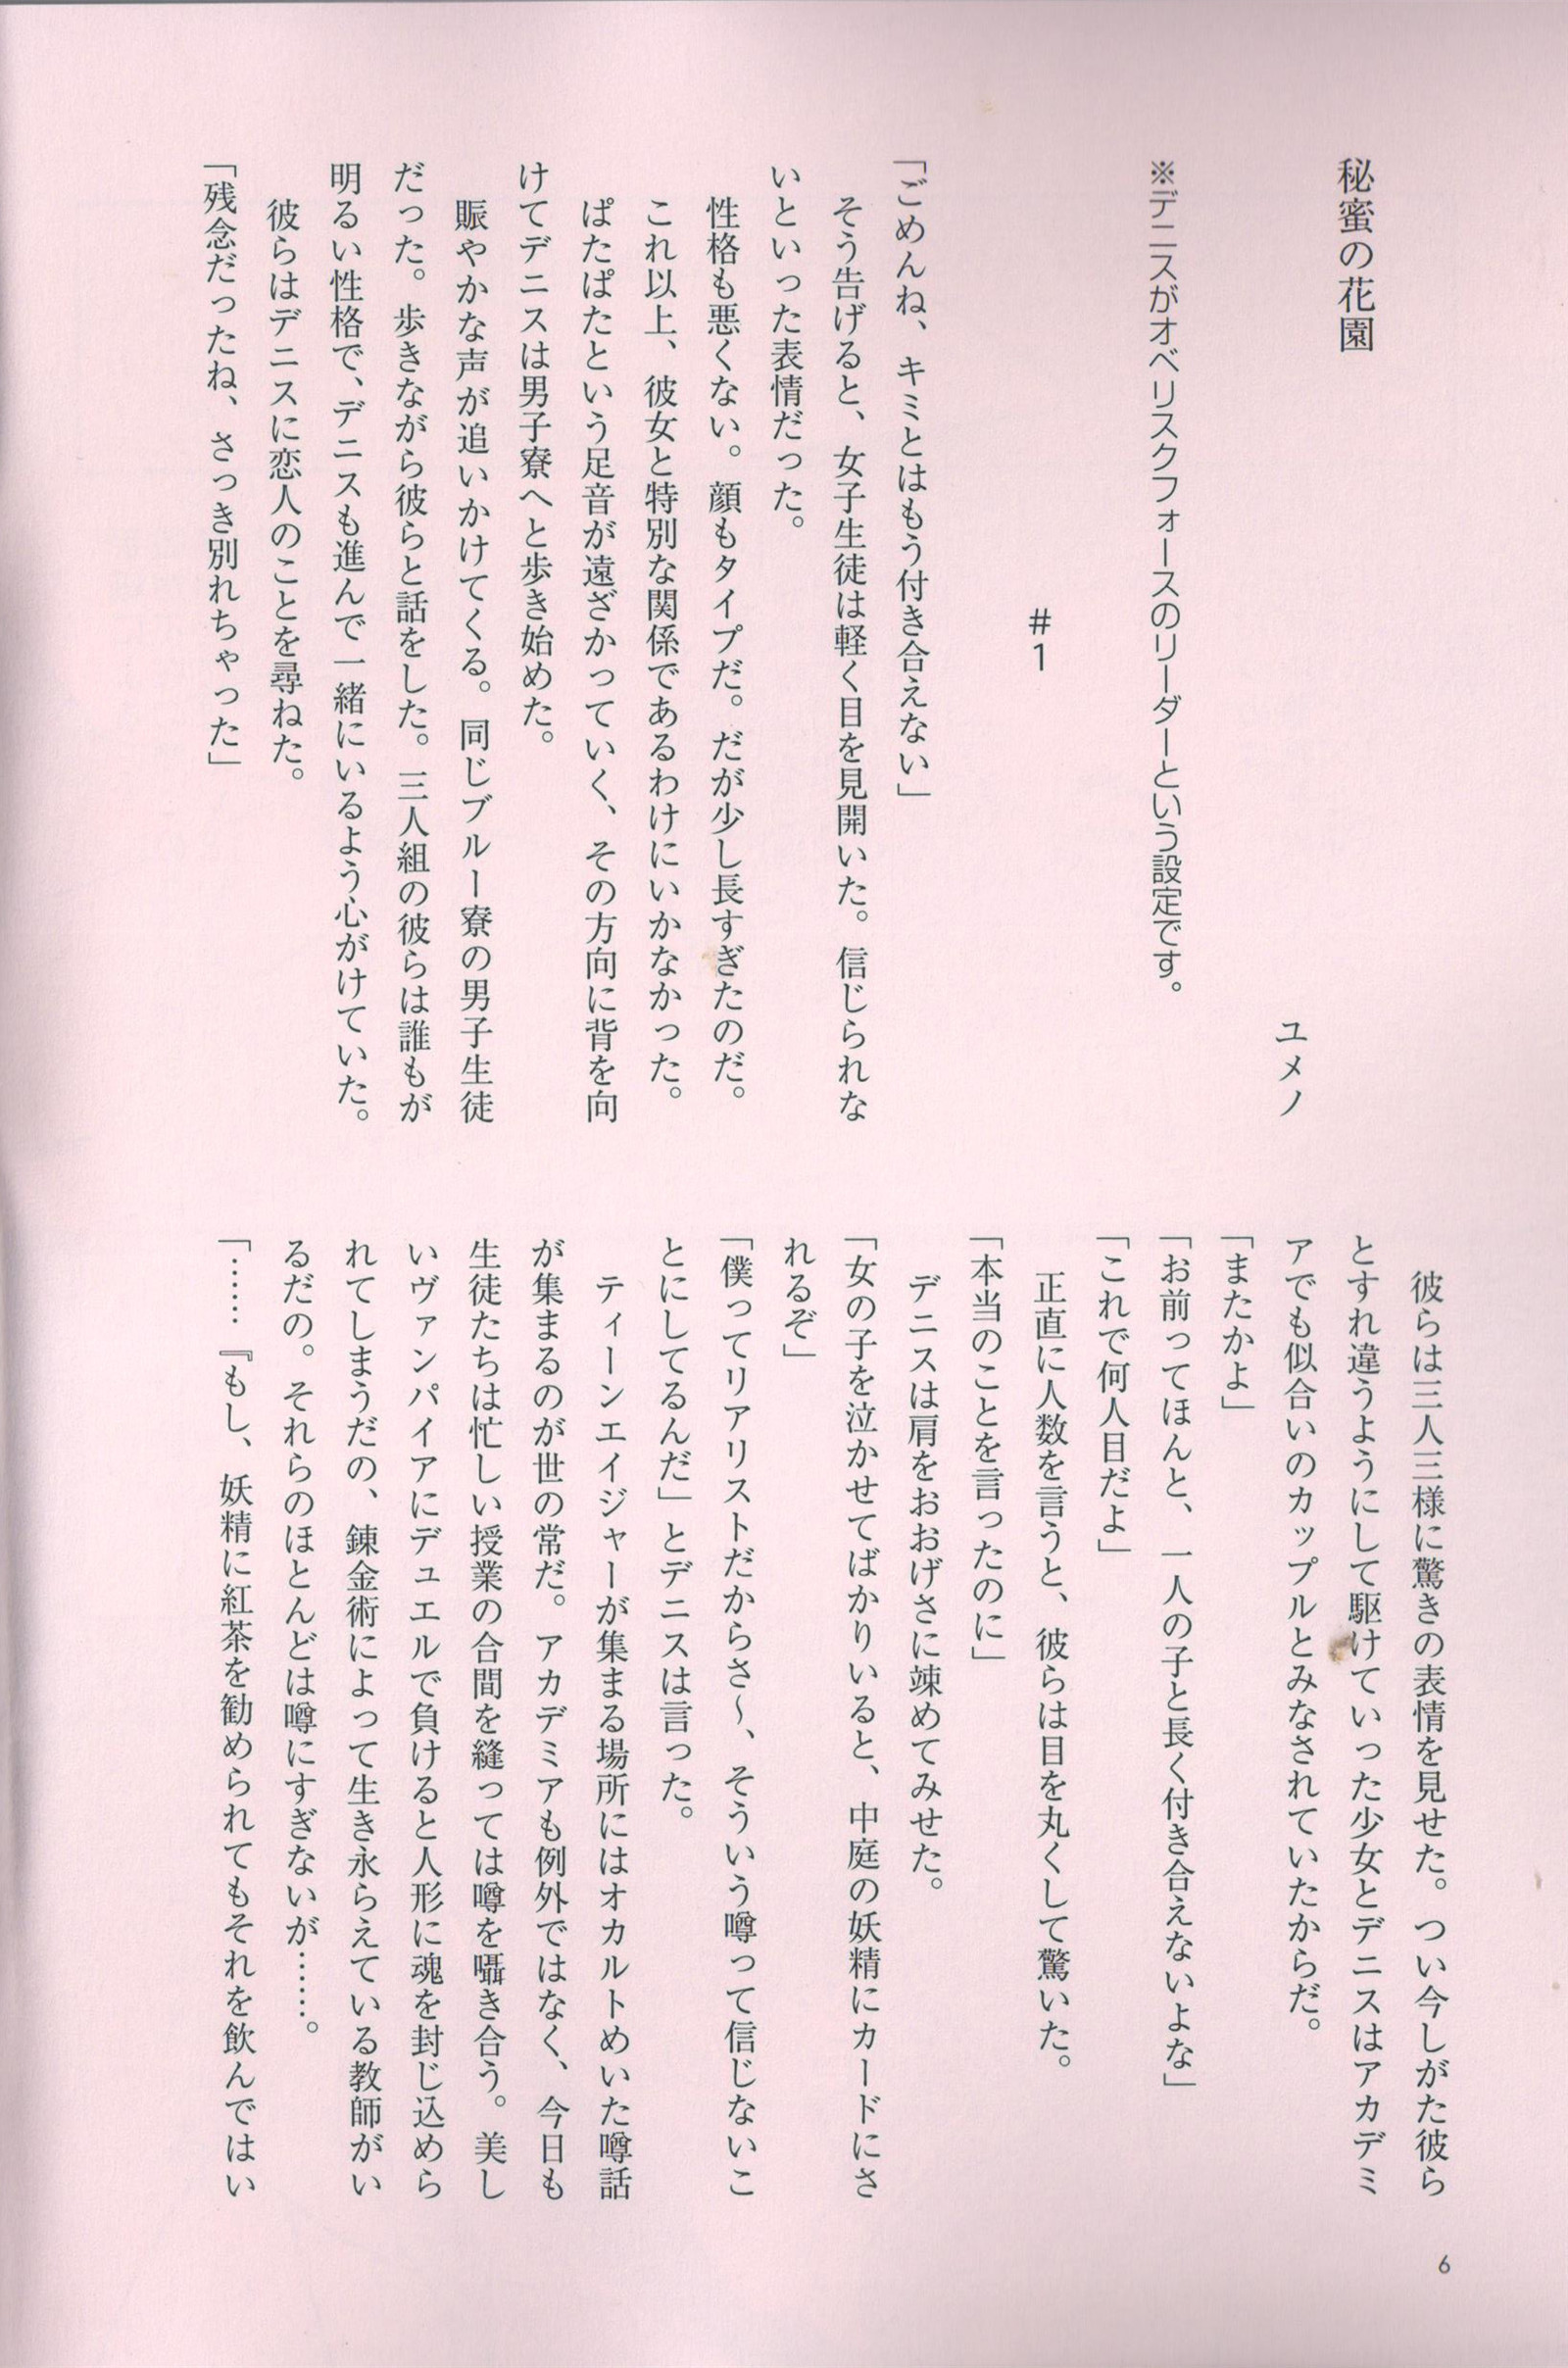 秘蜜の花園
ユメノ
※デニスがオベリスクフォースのリーダーという設定です。
#1
「ごめんね、キミとはもう付き合えない」
そう告げると、女子生徒は軽く目を見開いた。信じられな
いといった表情だった。
性格も悪くない。顔もタイプだ。だが少し長すぎたのだ。
これ以上、彼女と特別な関係であるわけにいかなかった。
ぱたぱたという足音が遠ざかっていく、その方向に背を向
けてデニスは男子寮へと歩き始めた。
賑やかな声が追いかけてくる。同じブルー寮の男子生徒
だった。歩きながら彼らと話をした。三人組の彼らは誰もが
明るい性格で、デニスも進んで一緒にいるよう心がけていた。
彼らはデニスに恋人のことを尋ねた。
「残念だったね、さっき別れちゃった」
彼らは三人三様に驚きの表情を見せた。つい今しがた彼ら
とすれ違うようにして駆けていった少女とデニスはアカデミ
アでも似合いのカップルとみなされていたからだ。
「またかよ」
「お前ってほんと、一人の子と長く付き合えないよな」
「これで何人目だよ」
正直に人数を言うと、彼らは目を丸くして驚いた。
「本当のことを言ったのに」
デニスは肩をおおげさに竦めてみせた。
「女の子を泣かせてばかりいると、中庭の妖精にカードにさ
れるぞ」
「僕ってリアリストだからさ〜、そういう噂って信じないこ
とにしてるんだ」とデニスは言った。
ティーンエイジャーが集まる場所にはオカルトめいた噂話
が集まるのが世の常だ。アカデミアも例外ではなく、今日も
生徒たちは忙しい授業の合間を縫っては噂を囁き合う。美し
いヴァンパイアにデュエルで負けると人形に魂を封じ込めら
れてしまうだの、錬金術によって生き永らえている教師がい
るだの。それらのほとんどは噂にすぎないが……。
「……『もし、妖精に紅茶を勧められてもそれを飲んではい
6